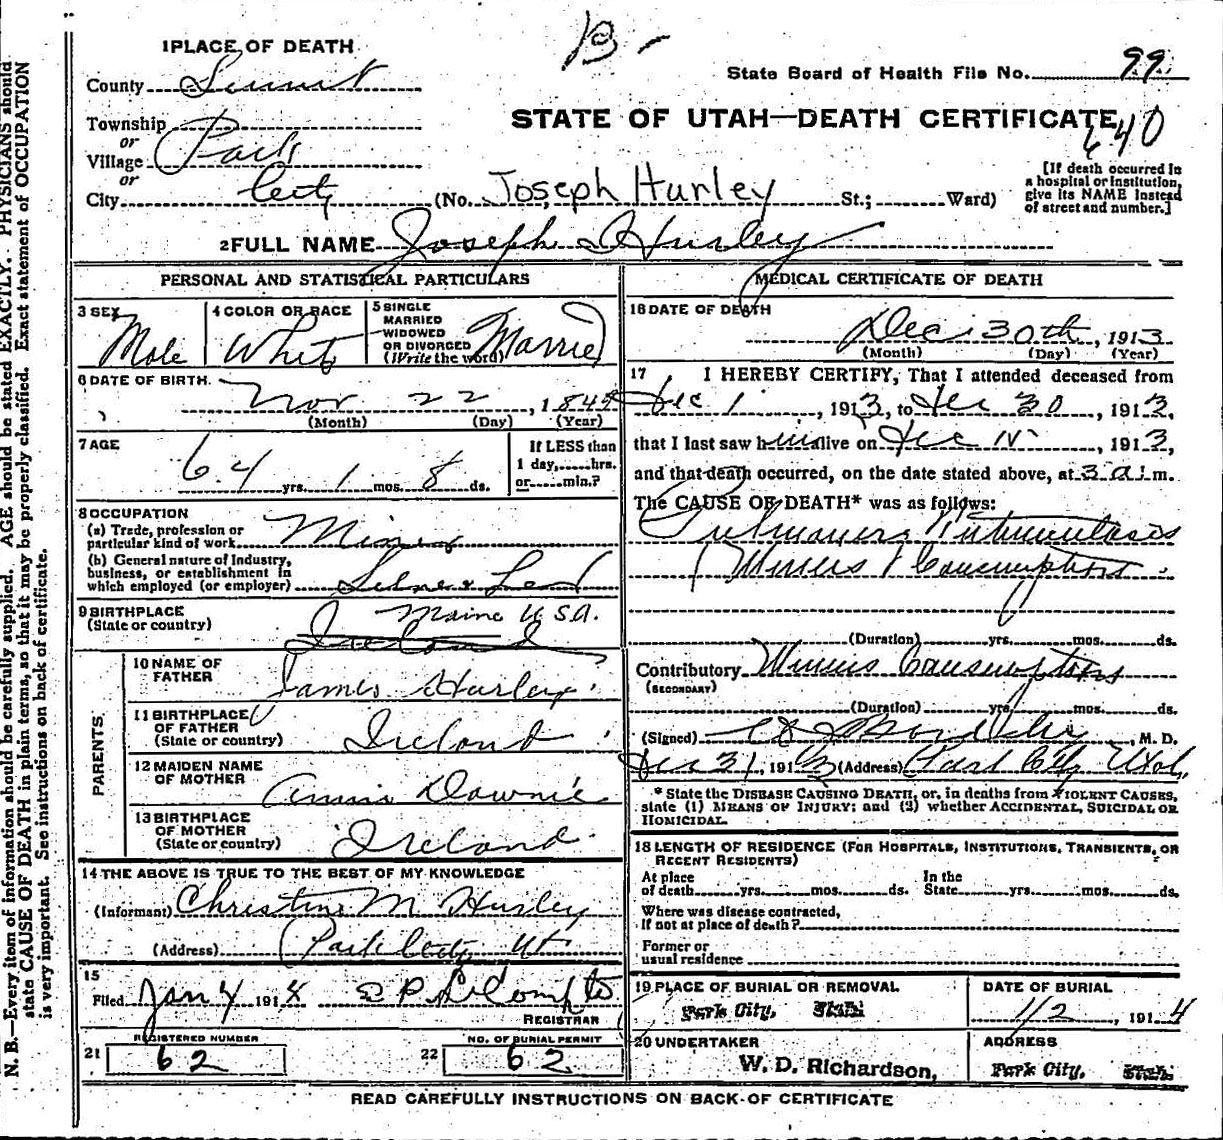 B -
1 PLACE OF DEATH
State Board of Health File No. 99
County Summit
STATE OF UTAH—DEATH CERTIFICATE
640
Township
or
Village Park
or
City City (No. Joseph Hurley St.; Ward)
[If death occurred in
a hospital or institution,
give its NAME instead
of street and number.]
2 FULL NAME Joseph Hurley
PERSONAL AND STATISTICAL PARTICULARS
3 SEX Male
4 COLOR OR RACE White
5 SINGLE
MARRIED
WIDOWED
OR DIVORCED
(Write the word) Married
6 DATE OF BIRTH.
Nov 22, 1849
(Month) (Day) (Year)
7 AGE
64 yrs. 1 mos. 8 ds.
If LESS than
1 day, hrs.
or min.?
8 OCCUPATION
(a) Trade, profession or
particular kind of work Miner
(b) General nature of Industry,
business, or establishment in
which employed (or employer) Silver & Lead
9 BIRTHPLACE
(State or country) Maine U.S.A.
Ireland
PARENTS
10 NAME OF
FATHER James Hurley
11 BIRTHPLACE
OF FATHER
(State or country) Ireland
12 MAIDEN NAME
OF MOTHER Annie Downie
13 BIRTHPLACE
OF MOTHER
(State or country) Ireland
14 THE ABOVE IS TRUE TO THE BEST OF MY KNOWLEDGE
(Informant) Christine M Hurley
(Address) Park City Ut.
15
Filed Jan 4 1914 E P LeCompte
REGISTRAR
21 REGISTERED NUMBER 62
22 NO. OF BURIAL PERMIT 62
MEDICAL CERTIFICATE OF DEATH
16 DATE OF DEATH
Dec 30th, 1913
(Month) (Day) (Year)
17 I HEREBY CERTIFY, That I attended deceased from
Dec 1, 1913, to Dec 30, 1913,
that I last saw him alive on Dec 15, 1913,
and that death occurred, on the date stated above, at 3 a.m.
The CAUSE OF DEATH* was as follows:
Pulmonary Tuberculosis
Miners Consumption
(Duration) yrs. mos. ds.
Contributory Miners Consumption
(SECONDARY)
(Duration) yrs. mos. ds.
(Signed) , M. D.
Dec 31, 1913 (Address) Park City Utah
* State the DISEASE CAUSING DEATH, or, in deaths from VIOLENT CAUSES,
state (1) MEANS OF INJURY; and (2) whether ACCIDENTAL, SUICIDAL OR
HOMICIDAL.
18 LENGTH OF RESIDENCE (FOR HOSPITALS, INSTITUTIONS, TRANSIENTS, OR
RECENT RESIDENTS)
At place
of death yrs. mos. ds.
In the
State yrs. mos. ds.
Where was disease contracted,
if not at place of death?
Former or
usual residence
19 PLACE OF BURIAL OR REMOVAL
Park City, Utah
DATE OF BURIAL
1/2, 1914
20 UNDERTAKER
W. D. Richardson,
ADDRESS
Park City, Utah
READ CAREFULLY INSTRUCTIONS ON BACK OF CERTIFICATE
N. B.—Every item of information should be carefully supplied. AGE should be stated EXACTLY. PHYSICIANS should
state CAUSE OF DEATH in plain terms, so that it may be properly classified. Exact statement of OCCUPATION
is very important. See instructions on back of certificate.